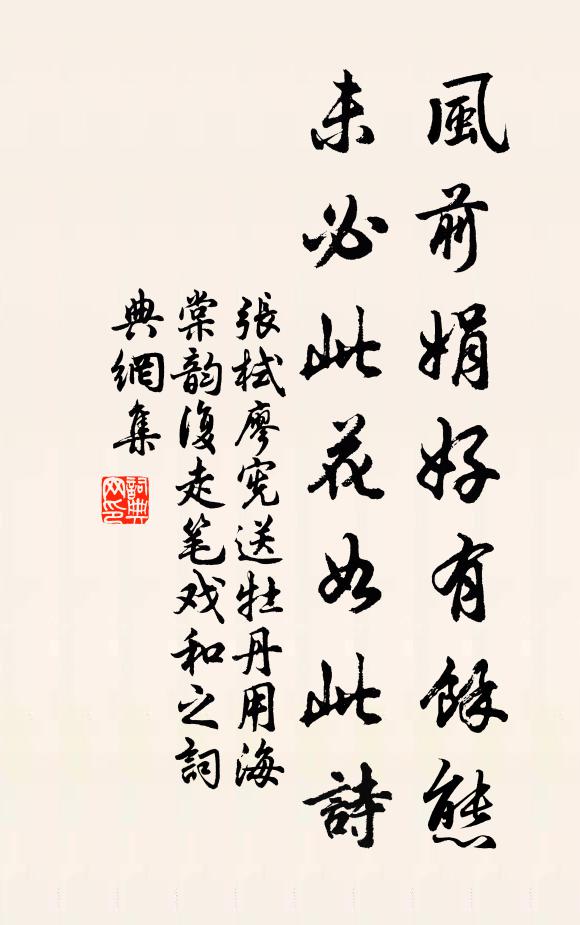 風前娟好有餘態
未必此花如此詩
張栻廖宪送牡丹用海
棠韵復走笔戏和之詞
典網集
詞典网印